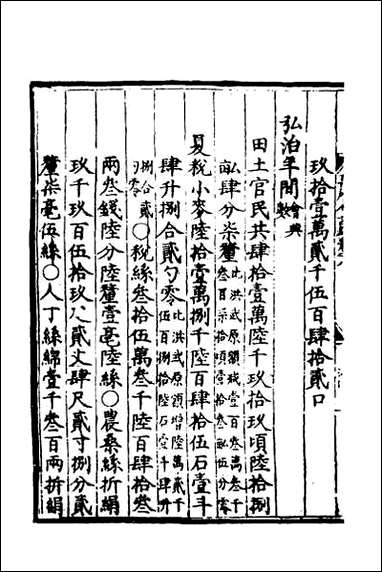 玖拾壹萬貳千伍百肆拾貳口
弘治年間會典數
田土官民共肆拾壹萬陸千玖拾玖頃陸拾捌
畝肆分柒釐比洪武原額減壹百叁萬叁千
夏稅小麥陸拾壹萬捌千陸百肆拾伍石壹斗
肆升捌合貳勺零比洪武原額增陸萬貳千
捌合貳勺零○稅絲叁拾伍萬叁千陸百肆拾叁
兩叁錢陸分陸釐壹毫陸絲○農桑絲折絹
玖千玖百伍拾玖疋貳丈肆尺貳寸捌分貳
釐柒毫伍絲○人丁絲綿壹千叁百兩折絹